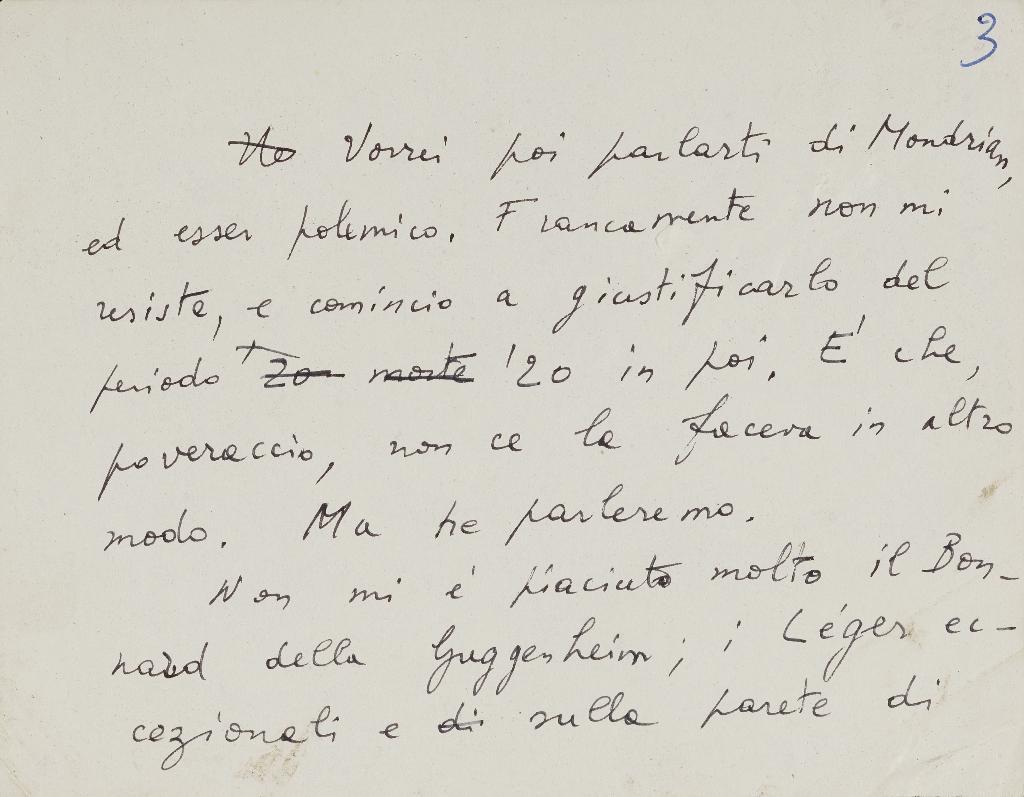 3
Ho Vorrei poi parlarti di Mondrian,
ed esser polemico. Francamente non mi
resiste, e comincio a giustificarlo del
periodo 20 morte '20 in poi. E' che,
poveraccio, non ce la faceva in altro
modo. Ma ne parleremo.
Non mi è piaciuto molto il Bon-
nard della Guggenheim; i Léger ec-
cezionali e di sulla parete di